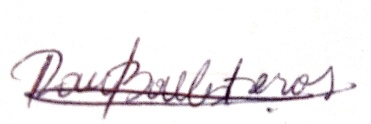 Raul Ballesteros